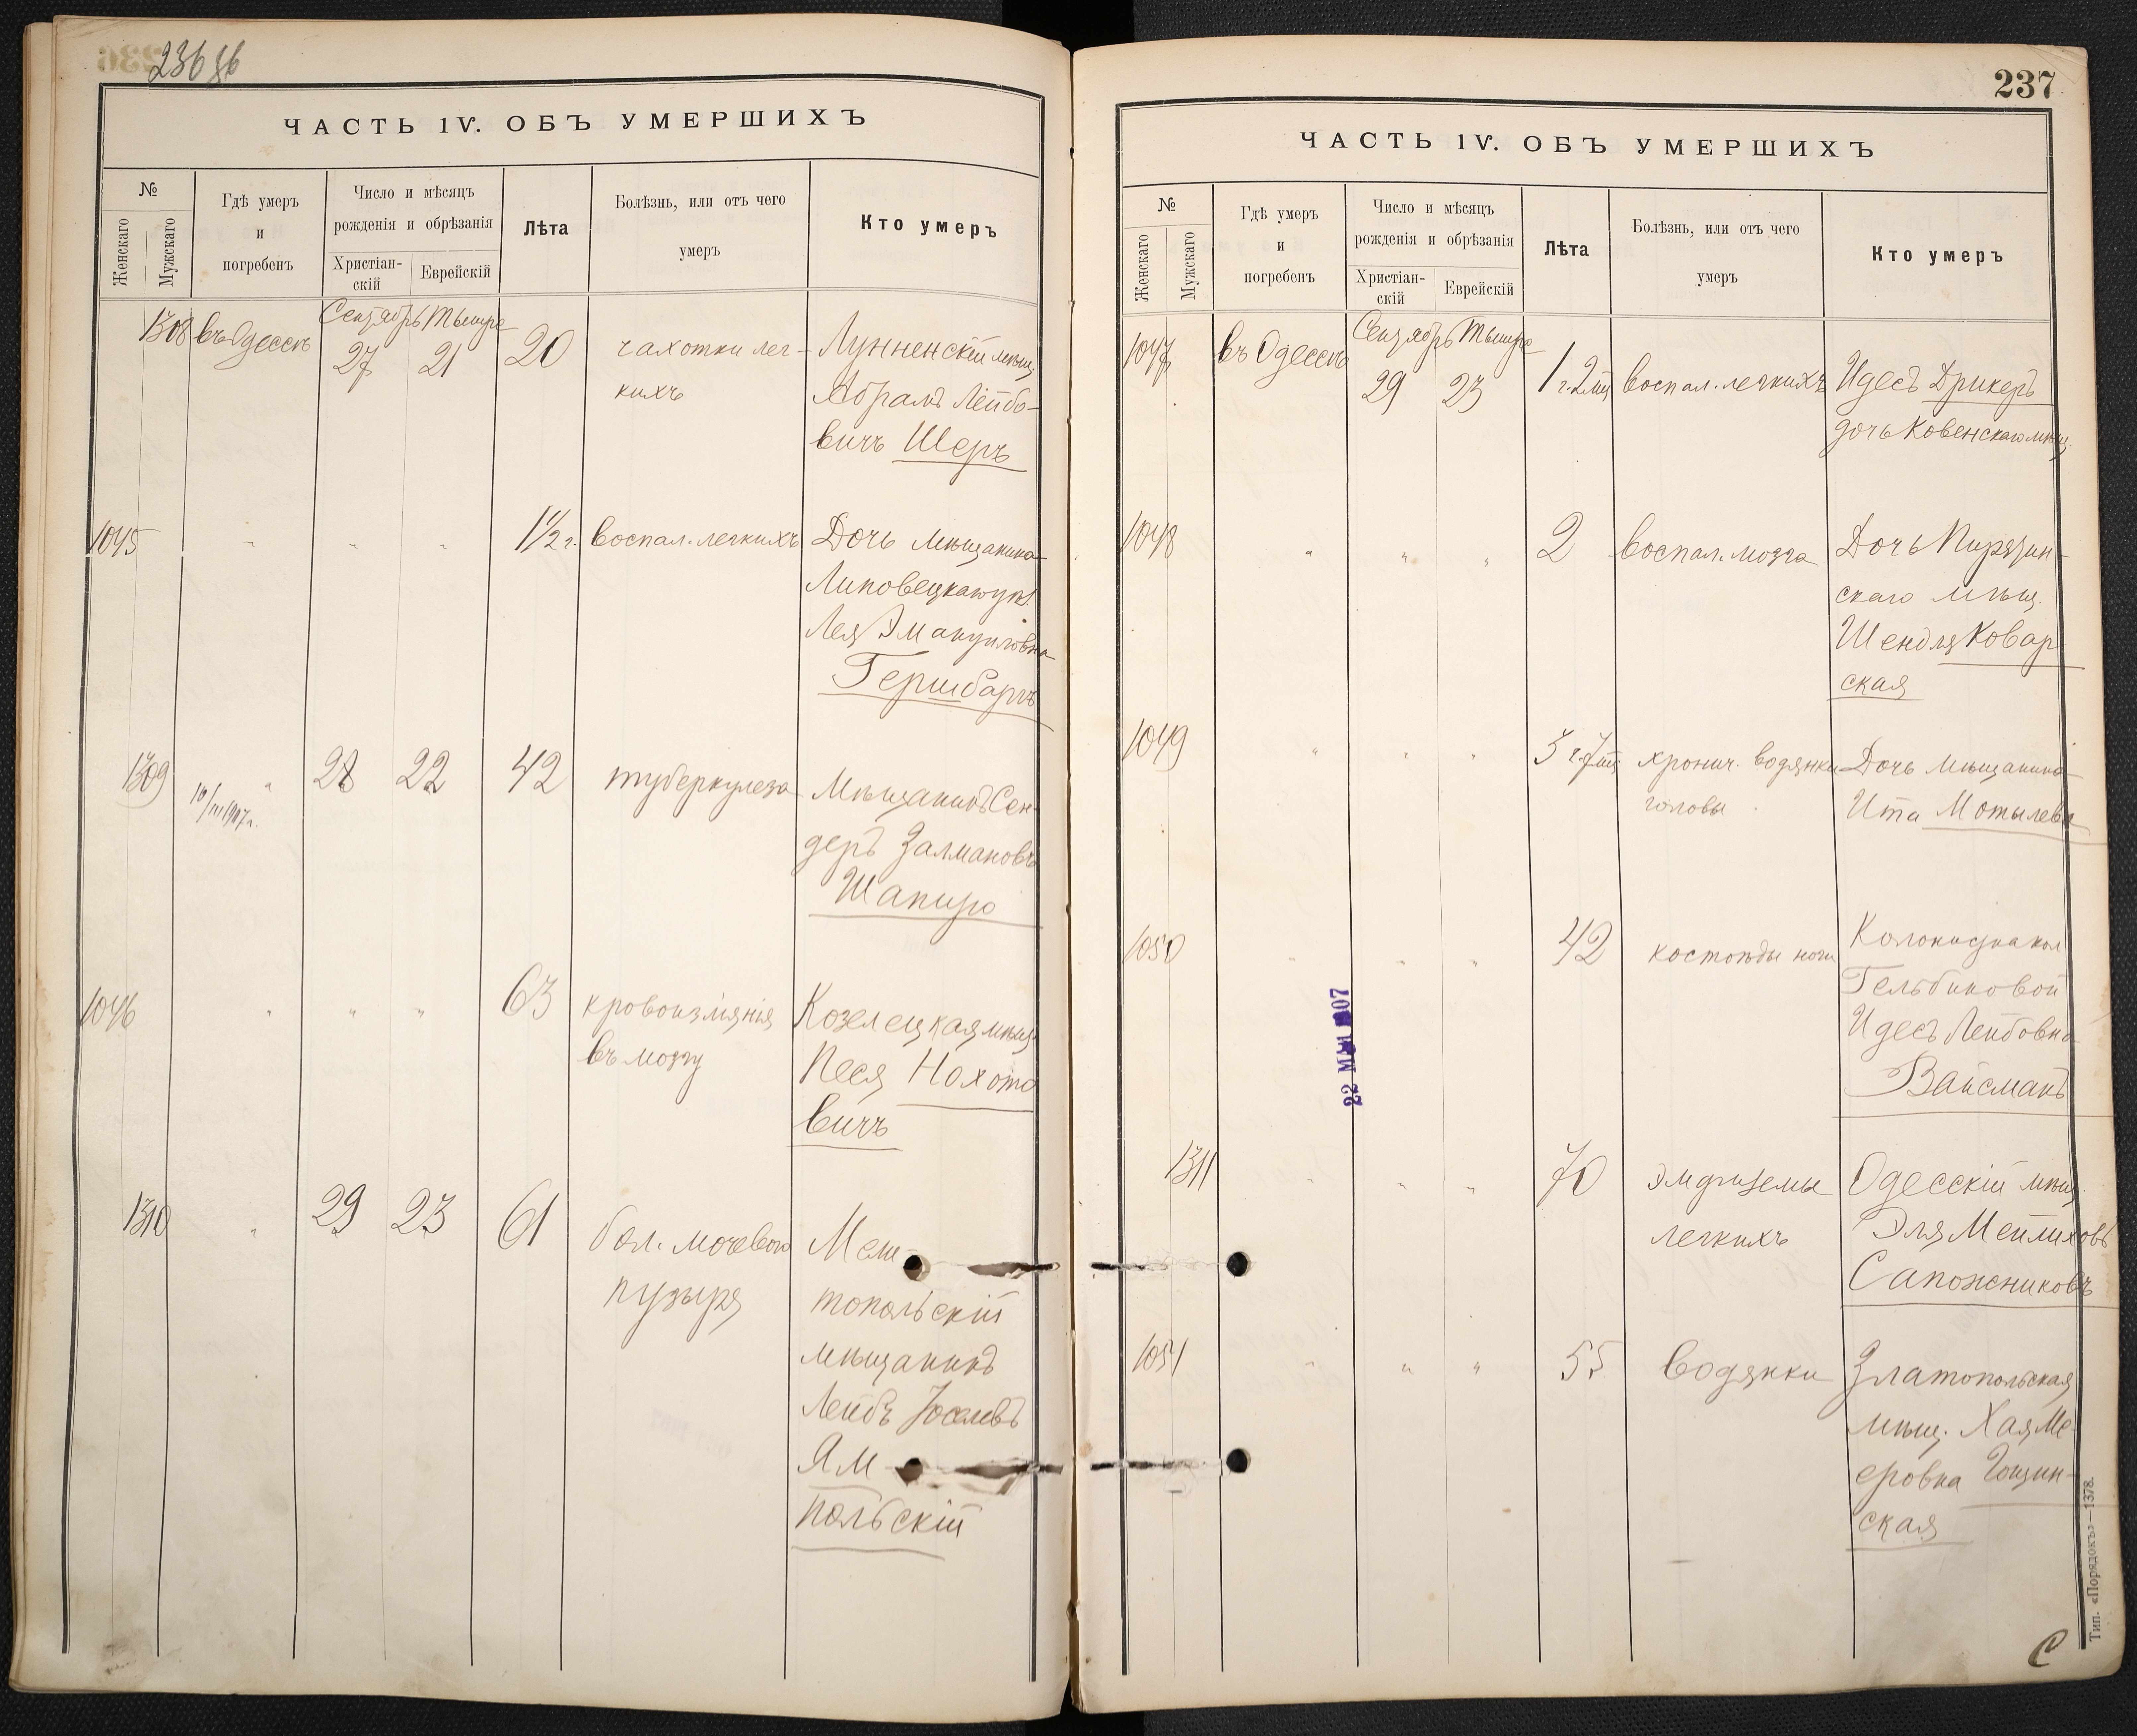 236 об
ЧАСТЬ IV. ОБЪ УМЕРШИХЪ
№
Женскаго
Мужскаго
Гдѣ умеръ
и
погребенъ
Число и мѣсяцъ
рожденія и обрѣзанія
Христіан-
скій
Еврейскій
Лѣта
Болѣзнь, или отъ чего
умеръ
Кто умеръ
Сентябрь Тышре
1308 въ Одессѣ 27 21 20 чахотки лег-
кихъ
Лунненскій мѣщ.
Абрамъ Лейбо-
вичъ Шеръ
1045 " " " 1 1/2 г. воспал. легкихъ
Дочь мѣщанина
Липовецкаго уѣз.
Лея Эмануиловна
Гершбаргъ
1309 " 28 22 42 туберкулеза
10/III 1907 г.
Мѣщанинъ Сен-
деръ Залмановъ
Шапиро
1046 " " " 63 кровоизліянія
въ мозгу
Козелецкая мѣщ.
Песя Нохимо
вичъ
1310 " 29 23 61 бол. мочевого
пузыря
Мели-
топольскій
мѣщанинъ
Лейбъ Іоселевъ
Ям-
польскій
237
ЧАСТЬ IV. ОБЪ УМЕРШИХЪ
№
Женскаго
Мужскаго
Гдѣ умеръ
и
погребенъ
Число и мѣсяцъ
рожденія и обрѣзанія
Христіан-
скій
Еврейскій
Лѣта
Болѣзнь, или отъ чего
умеръ
Кто умеръ
Сентябрь Тышре
1047 въ Одессѣ 29 23 1 г. 2 мѣс воспал. легкихъ
Идесъ Дрикеръ
дочь Ковенскаго мѣщ.
1048 " " " 2 воспал. мозга
Дочь Пирятин-
скаго мѣщ.
Шендля Ковар-
ская
1049 " " " 3 г. 7 мѣс хронич. водянки
головы
Дочь мѣщанина
Ита Мотылева
1050 " " " 42 костоѣды ноги
Колонистка кол.
Гельбиновой
Идесъ Лейбовна
Вайсманъ
22 МАЯ 1907
1311 " " " 70 эмфиземы
легкихъ
Одесскій мѣщ.
Эля Мейлиховъ
Сапожниковъ
1051 " " " 55 водянки
Златопольская
мѣщ. Хая Ме-
еровна Гощин-
ская
Тип. «Порядокъ»—1378.